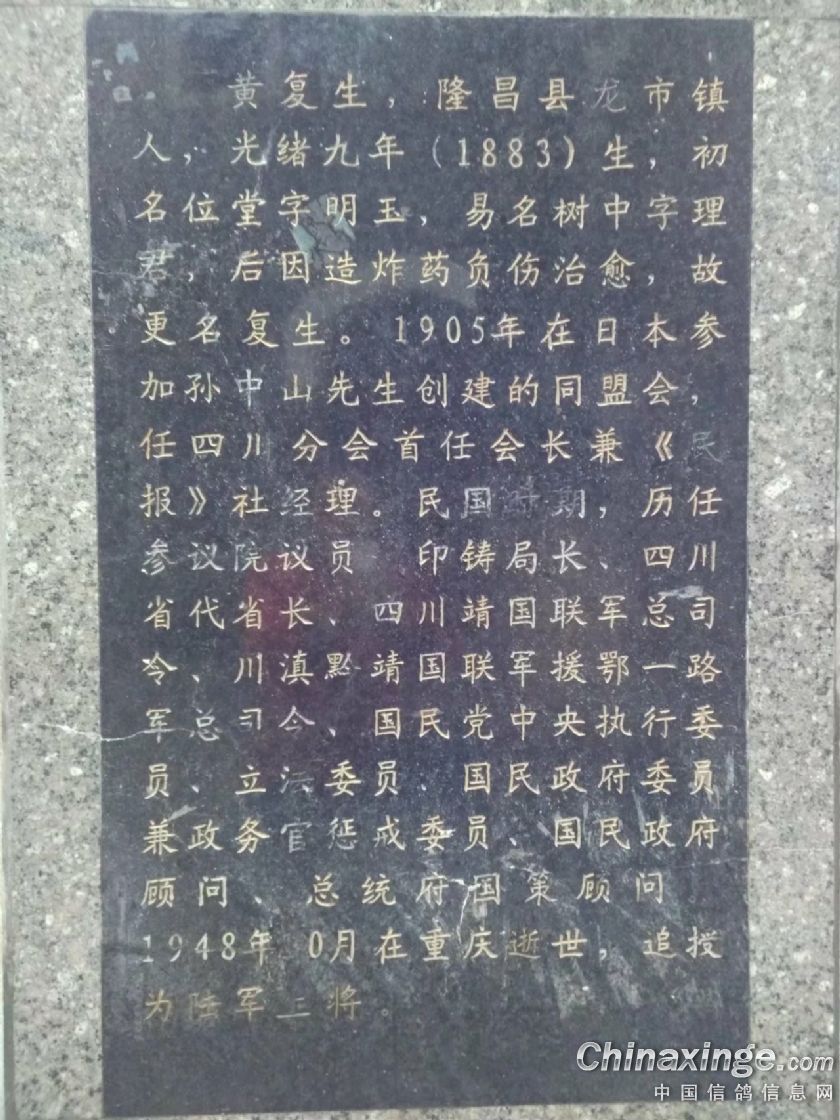 黄复生，隆昌县龙市镇
人，光绪九年（1883）生，初
名位堂字明玉，易名树中字理
君，后因造炸药负伤治愈，故
更名复生。1905年在日本参
加孙中山先生创建的同盟会，
任四川分会首任会长兼《民
报》社经理。民国时期，历任
参议院议员 印铸局长、四川
省代省长、四川靖国联军总司
令、川滇黔靖国联军援鄂一路
军总司令、国民党中央执行委
员、立法委员 国民政府委员
兼政务官惩戒委员、国民政府
顾问、总统府国策顾问
1948年 0月在重庆逝世，追授
为陆军上将。
Chinaxinge.com
中国信鸽信息网